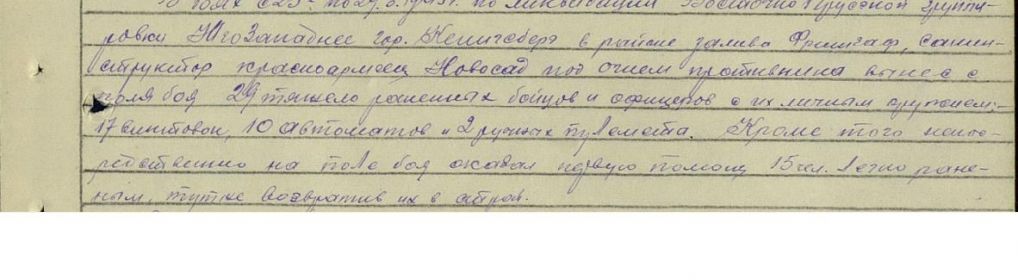 В боях с 23 по 29.3.1945г. по ликвидации Восточно Прусской группи-
ровки Юго Западнее гор. Кенигсберг в районе залива Фришгаф, санин-
структор красноармеец Новосад под огнем противника вынес с
поля боя 29 тяжело раненных бойцов и офицеров с их личным оружием:
17 винтовок, 10 автоматов и 2 ручных пулемета. Кроме того непос-
редственно на поле боя оказал первую помощь 15 чел. легко ране-
ным, тут же возвратив их в строй.